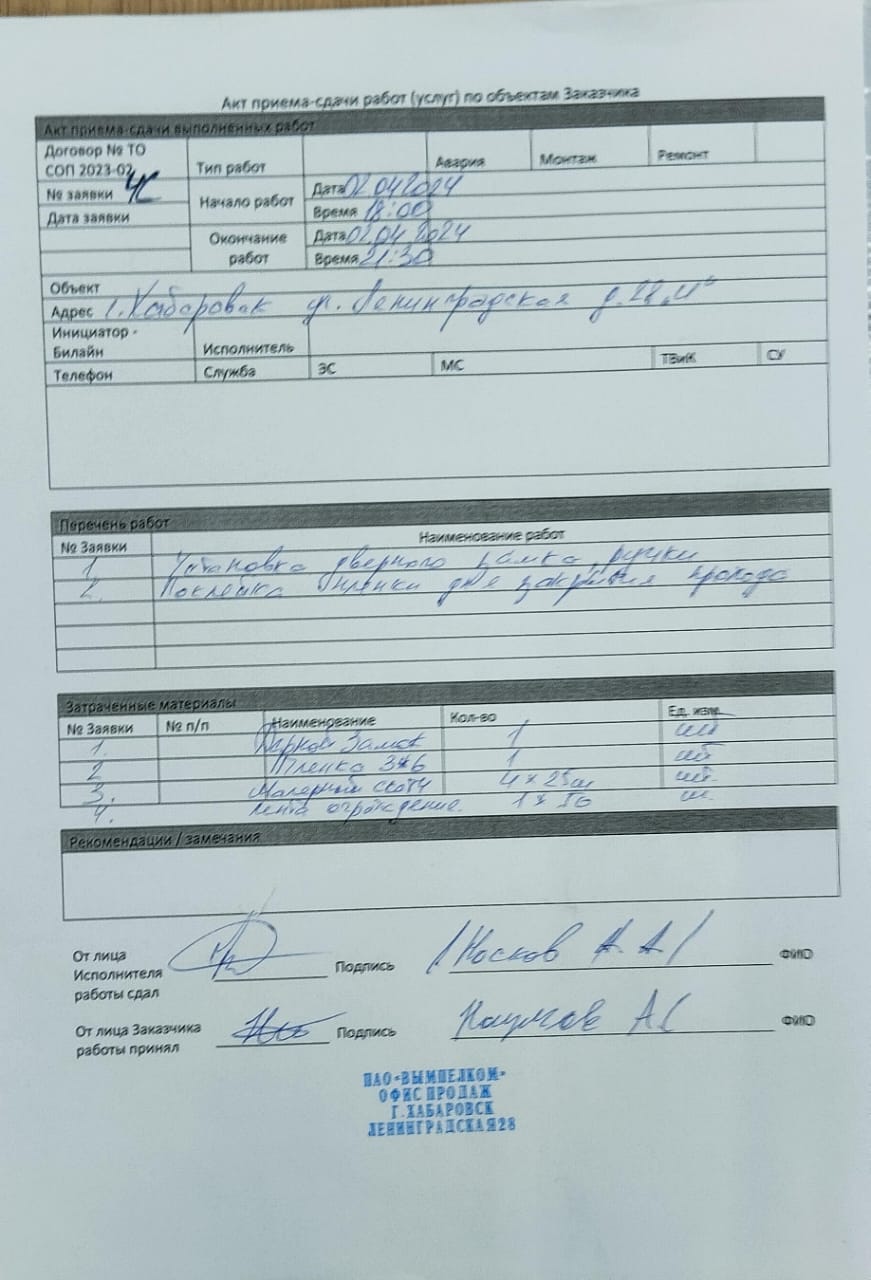 Акт приема-сдачи работ (услуг) по объектам Заказчика
Акт приема-сдачи выполненных работ
Договор № ТО СОП 2023-02 Тип работ Авария Монтаж Ремонт
№ заявки ЧС Начало работ Дата 02.04.2024
Дата заявки Время 18:00
Окончание работ Дата 02.04.2024
Время 21:30
Объект
Адрес г. Хабаровск ул. Ленинградская д. 28 „И"
Инициатор - Билайн Исполнитель
Телефон Служба ЭС МС ТВиК СУ
Перечень работ
№ Заявки Наименование работ
1 Установка дверного замка, ручки
2. Поклейка пленки для закрытия прохода
Затраченные материалы
№ Заявки № п/п Наименование Кол-во Ед. изм.
1. Замок 1 шт
2 Пленка 3х6 1 шт
3. Малярный скотч 4 х 25м шт.
4. лента ограждение. 1 х 50 шт.
Рекомендации / замечания
От лица Исполнителя работы сдал Подпись / Носков А. А / ФИО
От лица Заказчика работы принял Подпись Наумов А ФИО
ПАО «ВЫМПЕЛКОМ»
ОФИС ПРОДАЖ
Г.ХАБАРОВСК
ЛЕНИНГРАДСКАЯ 28